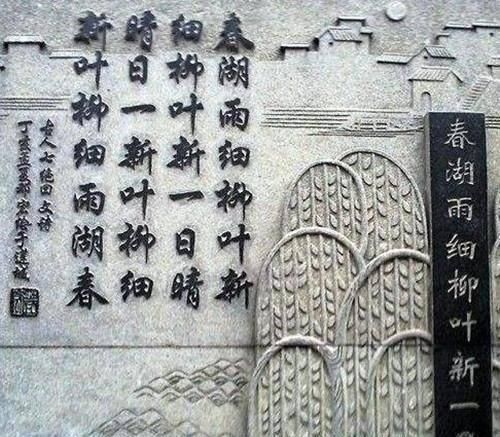 春湖雨细柳叶新一
春湖雨细柳叶新
细柳叶新一日晴
晴日一新叶柳细
新叶柳细雨湖春
古人七绝回文诗
丁亥孟夏